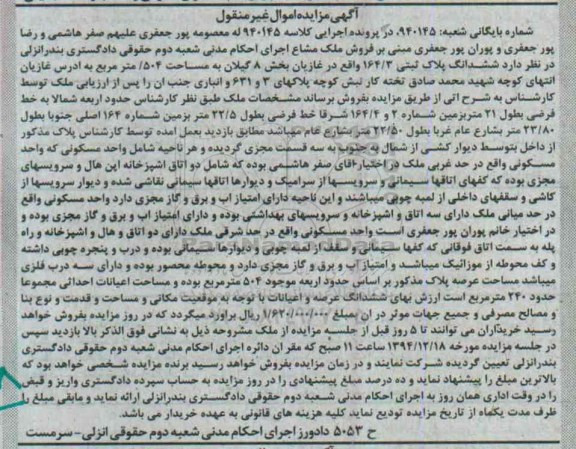 آگهی مزایده اموال غیر منقول
شماره بایگانی شعبه: ۹۴۰۱۴۵، در پرونده اجرایی کلاسه ۹۴۰۱۴۵ له معصومه پور جعفری علیهم صفر هاشمی و رضا
پور جعفری و پوران پور جعفری مبنی بر فروش ملک مشاع اجرای احکام مدنی شعبه دوم حقوقی دادگستری بندرانزلی
در نظر دارد ششدانگ پلاک ثبتی ۱۶۴/۳ واقع در غازیان بخش ۸ گیلان به مساحت ۵۰۴/ متر مربع به آدرس غازیان
انتهای کوچه شهید محمد صادق تخته کار نبش کوچه پلاکهای ۳ و ۶۳۱ و انباری جنب آن را پس از ارزیابی ملک توسط
کارشناس به شرح آتی از طریق مزایده بفروش برساند مشخصات ملک طبق نظر کارشناس حدود اربعه شمالا به خط
فرضی بطول ۲۱ متر بزمین شماره ۲ و ۱۶۴/۴ شرقا خط فرضی بطول ۲۲/۵ متر بزمین شماره ۱۶۴ اصلی جنوبا بطول
۲۳/۸۰ متر بشارع عام غربا بطول ۲۲/۵۰ متر بشارع عام میباشد مطابق بازدید بعمل آمده توسط کارشناس پلاک مذکور
از داخل بتوسط دیوار کشی از شمال به جنوب به سه قسمت مجزی گردیده و هر ناحیه شامل واحد مسکونی که واحد
مسکونی واقع در حد غربی ملک در اختیار آقای صفر هاشمی بوده که شامل دو اتاق آشپزخانه این هال و سرویسهای
مجزی بوده که کفهای اتاقها سیمانی و سرویسها از سرامیک و دیوارها اتاقها سیمانی نقاشی شده و دیوار سرویسها از
کاشی و سقفهای داخلی از لمبه چوبی میباشند و این ناحیه دارای امتیاز آب و برق و گاز مجزی دارد واحد مسکونی واقع
در حد میانی ملک دارای سه اتاق و آشپزخانه و سرویسهای بهداشتی بوده و دارای امتیاز آب و برق و گاز مجزی بوده و
در اختیار خانم پوران پور جعفری است واحد مسکونی واقع در حد شرقی ملک دارای دو اتاق و هال و آشپزخانه و راه
پله به سمت اتاق فوقانی که کفها سیمانی و سقف از لمبه چوبی و دیوارها سیمانی بوده و درب و پنجره چوبی داشته
و کف محوطه از موزائیک میباشد و امتیاز آب و برق و گاز مجزی دارد و محوطه محصور بوده و دارای سه درب فلزی
میباشد مساحت عرصه پلاک مذکور بر اساس حدود اربعه موجود ۵۰۴ مترمربع بوده و مساحت اعیانات احداثی مجموعا
حدود ۲۴۰ مترمربع است ارزش بهای ششدانگ عرصه و اعیانات با توجه به موقعیت مکانی و مساحت و قدمت و نوع بنا
و مصالح مصرفی و جمیع جهات موثر در آن بمبلغ ۱/۶۲۰/۰۰۰/۰۰۰ ریال برآورد میگردد که در روز مزایده بفروش خواهد
رسید خریداران می توانند تا ۵ روز قبل از جلسه مزایده از ملک مشروحه ذیل به نشانی فوق الذکر بالا بازدید سپس
در جلسه مزایده مورخه ۱۳۹۴/۱۲/۱۸ ساعت ۱۱ صبح که مقر آن دائره اجرای احکام مدنی شعبه دوم حقوقی دادگستری
بندرانزلی تعیین گردیده شرکت نمایند و در زمان مزایده بفروش خواهد رسید برنده مزایده شخصی خواهد بود که
بالاترین مبلغ را پیشنهاد نماید و ده درصد مبلغ پیشنهادی را در روز مزایده به حساب سپرده دادگستری واریز و قبض
را در وقت اداری همان روز به اجرای احکام مدنی شعبه دوم حقوقی دادگستری بندرانزلی ارائه نماید و مابقی مبلغ را
ظرف مدت یکماه از تاریخ مزایده تودیع نماید کلیه هزینه های قانونی به عهده خریدار می باشد.
ح ۵۰۵۳ دادورز اجرای احکام مدنی شعبه دوم حقوقی انزلی- سرمست